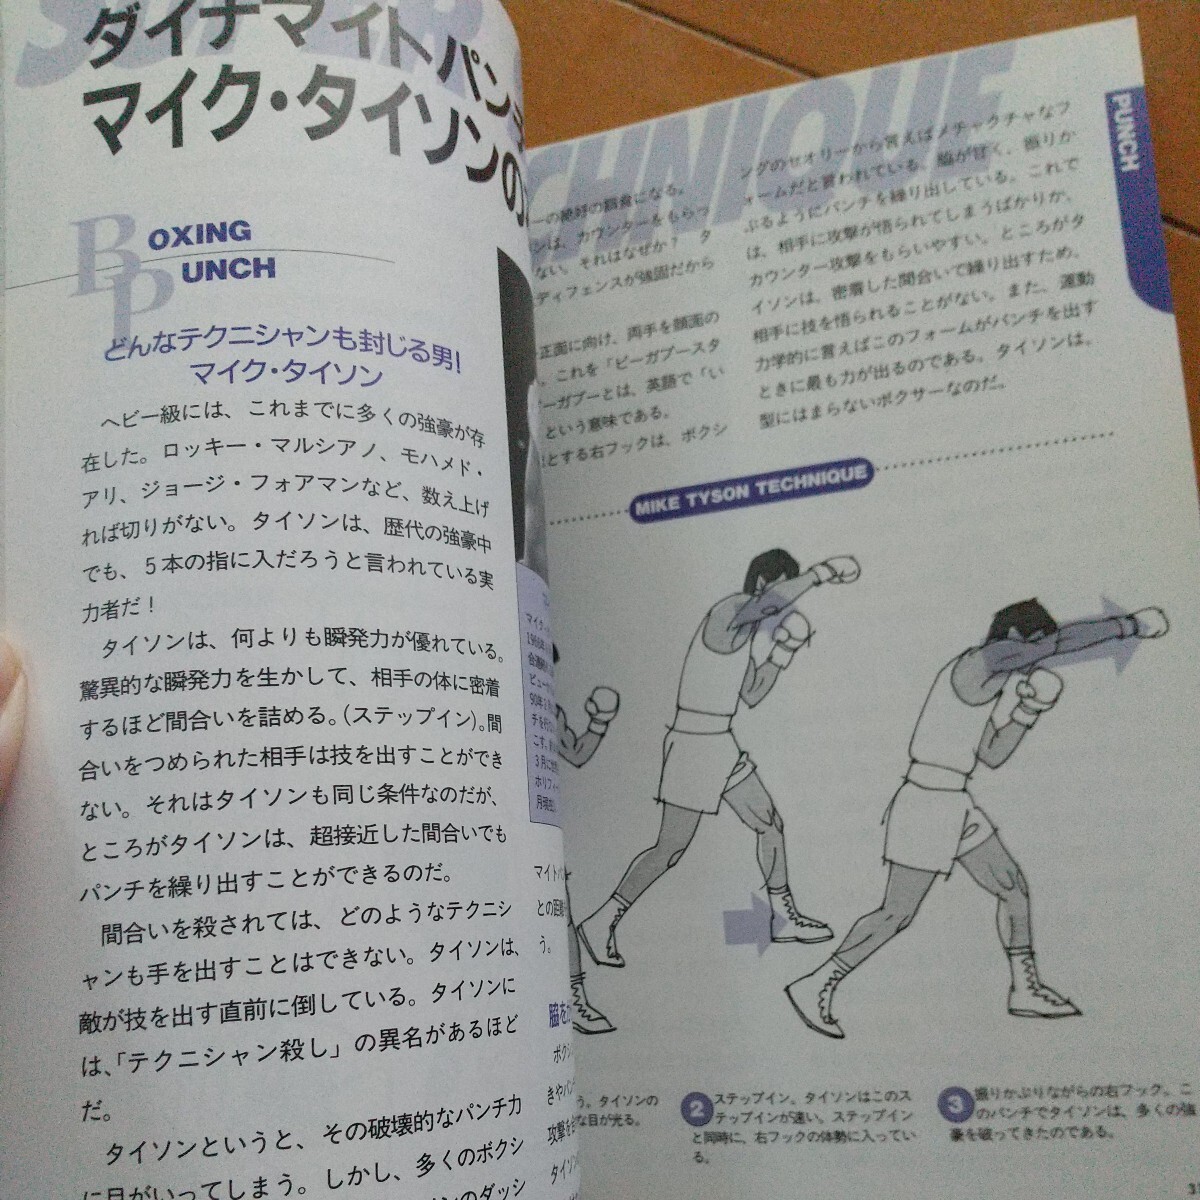 SUPER
ダイナマイトパンチ
マイク・タイソンの
BOXING
PUNCH
どんなテクニシャンも封じる男!
マイク・タイソン
ヘビー級には、これまでに多くの強豪が存
在した。ロッキー・マルシアノ、モハメド・
アリ、ジョージ・フォアマンなど、数え上げ
れば切りがない。タイソンは、歴代の強豪中
でも、5本の指に入だろうと言われている実
力者だ!
タイソンは、何よりも瞬発力が優れている。
驚異的な瞬発力を生かして、相手の体に密着
するほど間合いを詰める。(ステップイン)。間
合いをつめられた相手は技を出すことができ
ない。それはタイソンも同じ条件なのだが、
ところがタイソンは、超接近した間合いでも
パンチを繰り出すことができるのだ。
間合いを殺されては、どのようなテクニシ
ャンも手を出すことはできない。タイソンは、
敵が技を出す直前に倒している。タイソンに
は、「テクニシャン殺し」の異名があるほど
だ。
タイソンというと、その破壊的なパンチ力
に目がいってしまう。しかし、多くのボクシ
ンのダッシ
マイク・
1966年
90年
3月に
ホリフィー
マイトパ
との距離
う。
脇を
ボクシ
きやパン
攻撃を
タイソ
CHNIQUE
PUNCH
ーの絶好の餌食になる。
ンは、カウンターをもらっ
ない。それはなぜか? タ
ディフェンスが強固だから
正面に向け、両手を顔面の
、これを「ピーガブースタ
ーガブーとは、英語で「い
という意味である。
とする右フックは、ボクシ
ングのセオリーから言えばメチャクチャなフ
ォームだと言われている。脇が甘く、振りか
ぶるようにパンチを繰り出している。これで
は、相手に攻撃が悟られてしまうばかりか、
カウンター攻撃をもらいやすい。ところがタ
イソンは、密着した間合いで繰り出すため、
相手に技を悟られることがない。また、運動
力学的に言えばこのフォームがパンチを出す
ときに最も力が出るのである。タイソンは、
型にはまらないボクサーなのだ。
MIKE TYSON TECHNIQUE
う。タイソンの
な目が光る。
2 ステップイン。タイソンはこのス
テップインが速い。ステップイン
と同時に、右フックの体勢に入ってい
る。
3 振りかぶりながらの右フック。こ
のパンチでタイソンは、多くの強
豪を破ってきたのである。